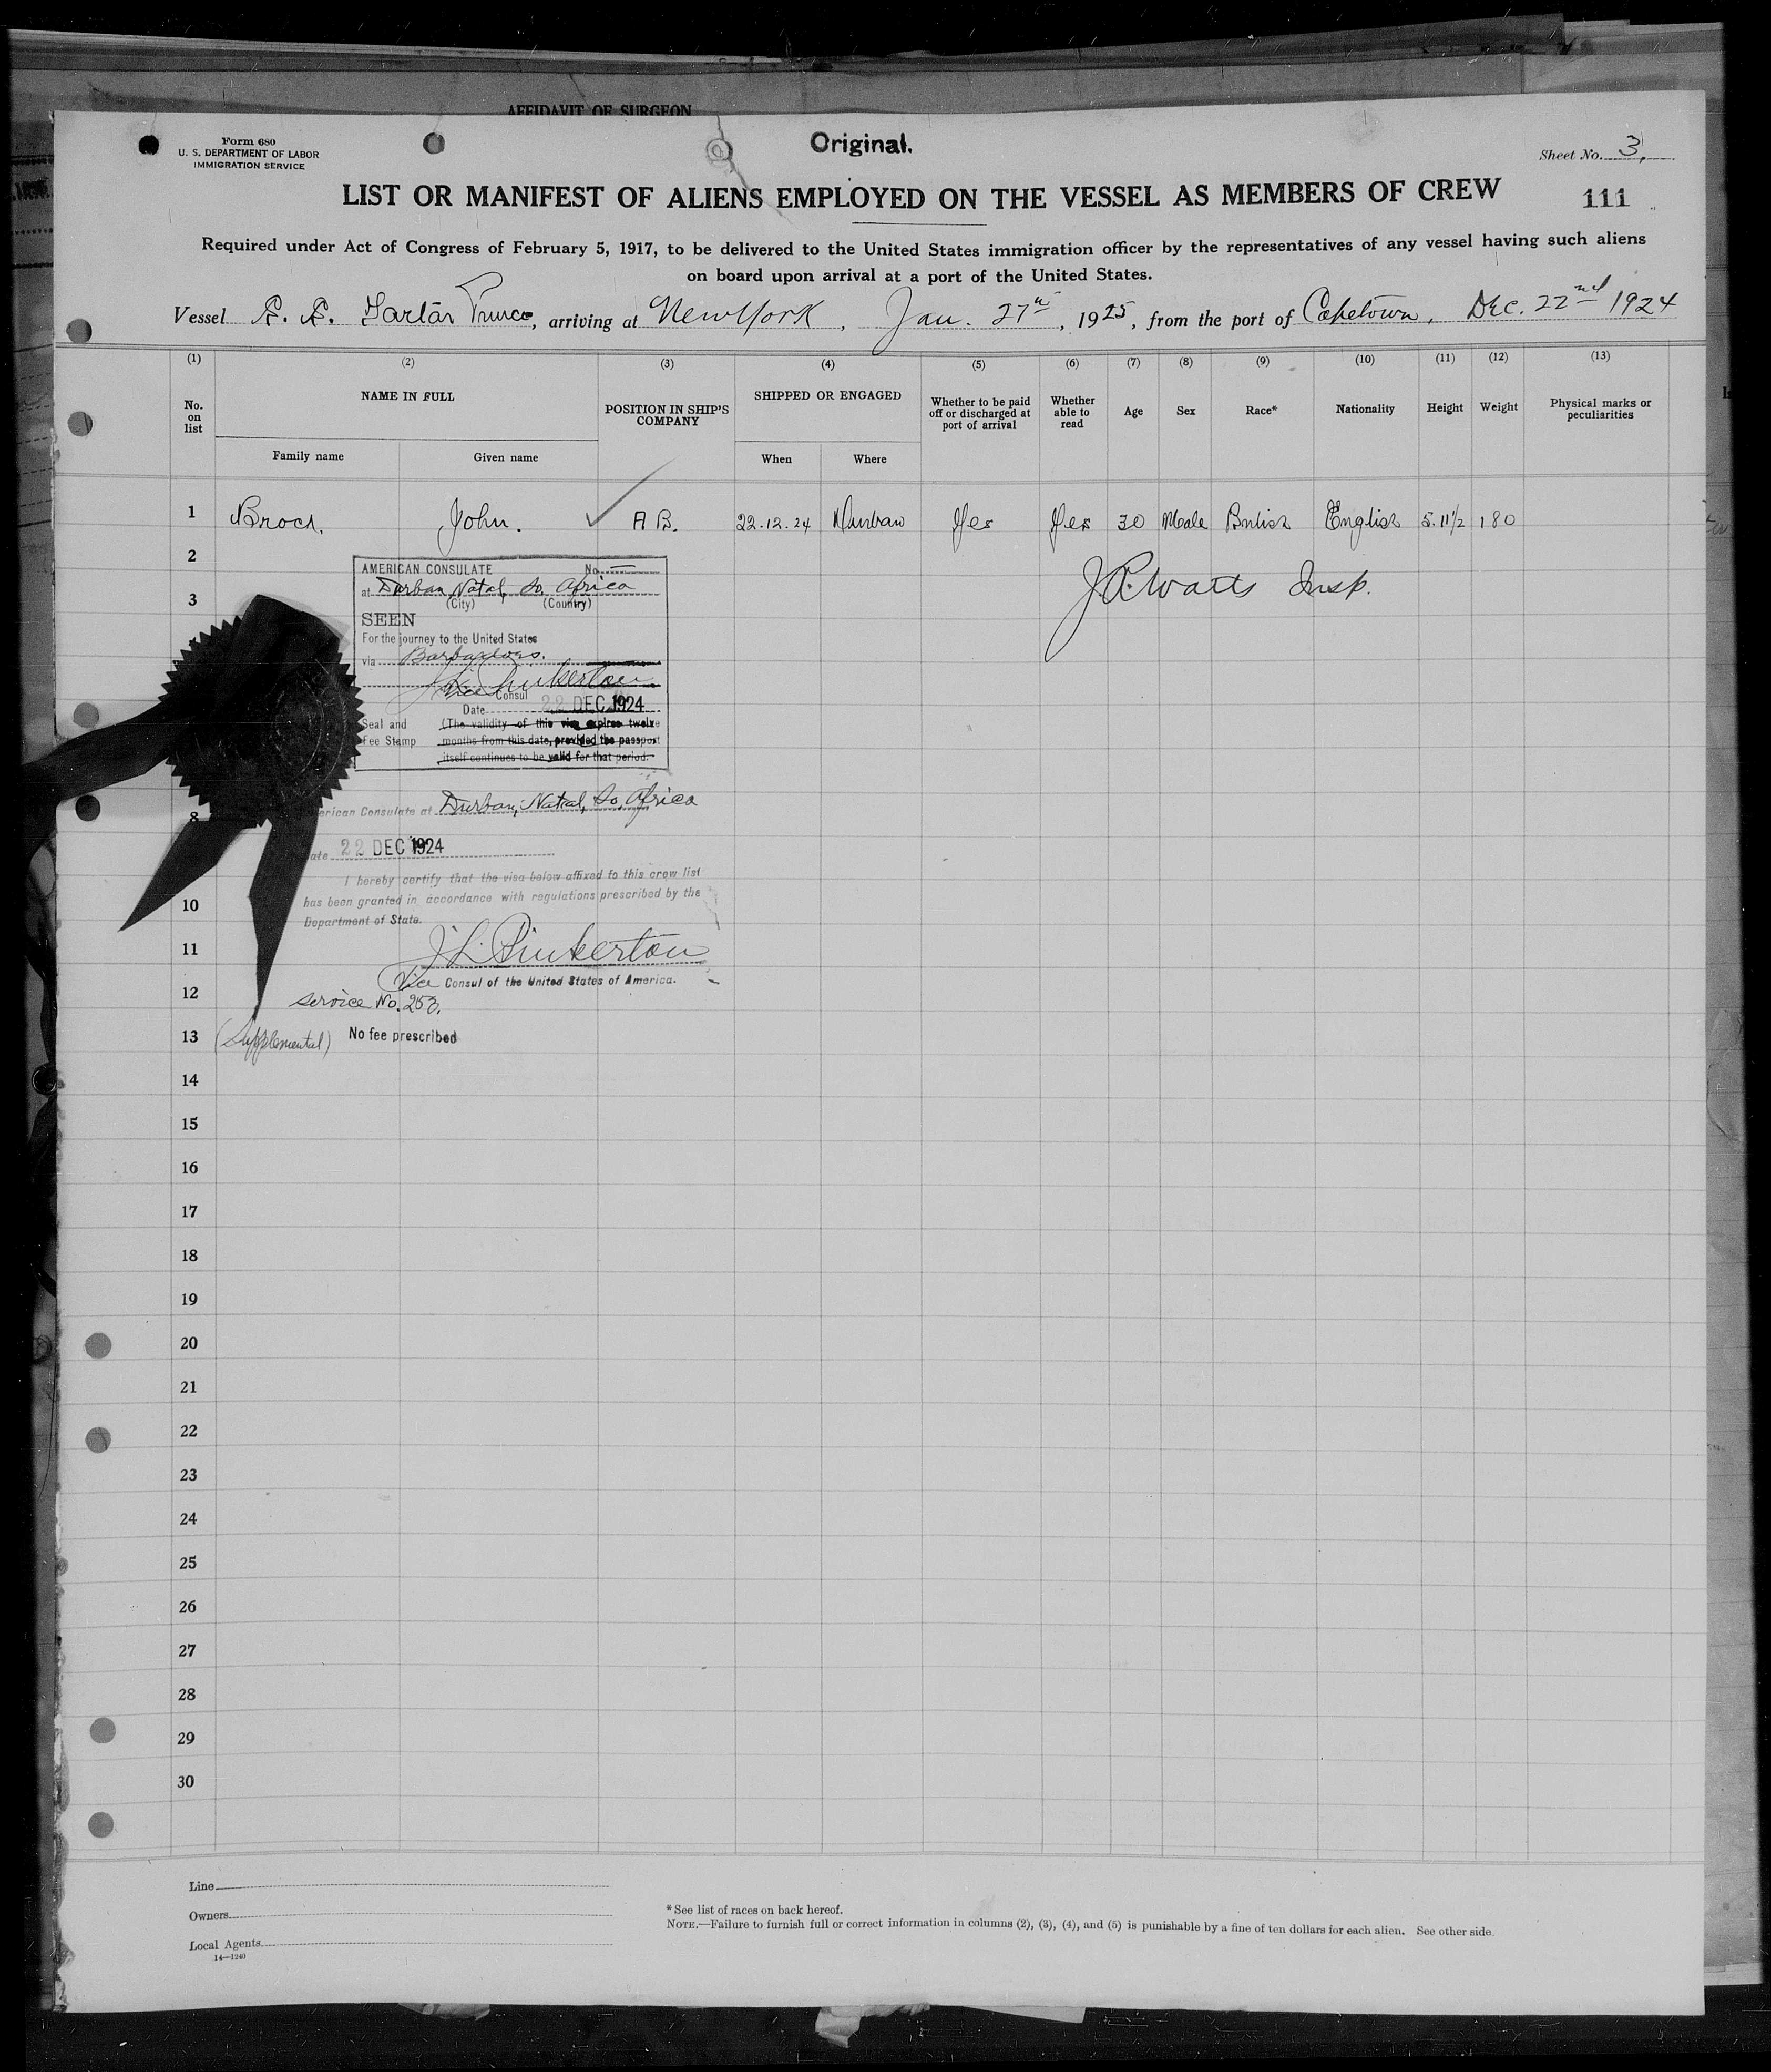 AFFIDAVIT OF SURGEON
Form 680
U. S. DEPARTMENT OF LABOR
IMMIGRATION SERVICE
Original.
Sheet No. 3,
111
LIST OR MANIFEST OF ALIENS EMPLOYED ON THE VESSEL AS MEMBERS OF CREW
Required under Act of Congress of February 5, 1917, to be delivered to the United States immigration officer by the representatives of any vessel having such aliens
on board upon arrival at a port of the United States.
Vessel S. S. Tartar Prince, arriving at New York, Jan. 27th, 1925, from the port of Capetown, Dec. 22nd 1924
(1) (2) (3) (4) (5) (6) (7) (8) (9) (10) (11) (12) (13)
No. on list
NAME IN FULL
Family name
Given name
POSITION IN SHIP'S COMPANY
SHIPPED OR ENGAGED
When
Where
Whether to be paid off or discharged at port of arrival
Whether able to read
Age
Sex
Race*
Nationality
Height
Weight
Physical marks or peculiarities
1 John. A B. 22.12.24 Durban Yes Yes 30 Male British English 5.11½ 180
2
J.A. Watts Insp.
3
AMERICAN CONSULATE No.
at Durban, Natal, So. Africa
(City) (Country)
SEEN
For the journey to the United States
via Barbadoes.
J L Pinkerton
Vice Consul
Date 22 DEC 1924
Seal and Fee Stamp
(The validity of this visa expires twelve
months from this date, provided the passport
itself continues to be valid for that period.
8
American Consulate at Durban, Natal, So. Africa
Date 22 DEC 1924
I hereby certify that the visa below affixed to this crew list
10 has been granted in accordance with regulations prescribed by the
Department of State.
11 J. L. Pinkerton
Vice Consul of the United States of America.
12 Service No. 253.
13 (Supplemental) No fee prescribed
14
15
16
17
18
19
20
21
22
23
24
25
26
27
28
29
30
Line
Owners
Local Agents
14—1240
*See list of races on back hereof.
NOTE.—Failure to furnish full or correct information in columns (2), (3), (4), and (5) is punishable by a fine of ten dollars for each alien. See other side.